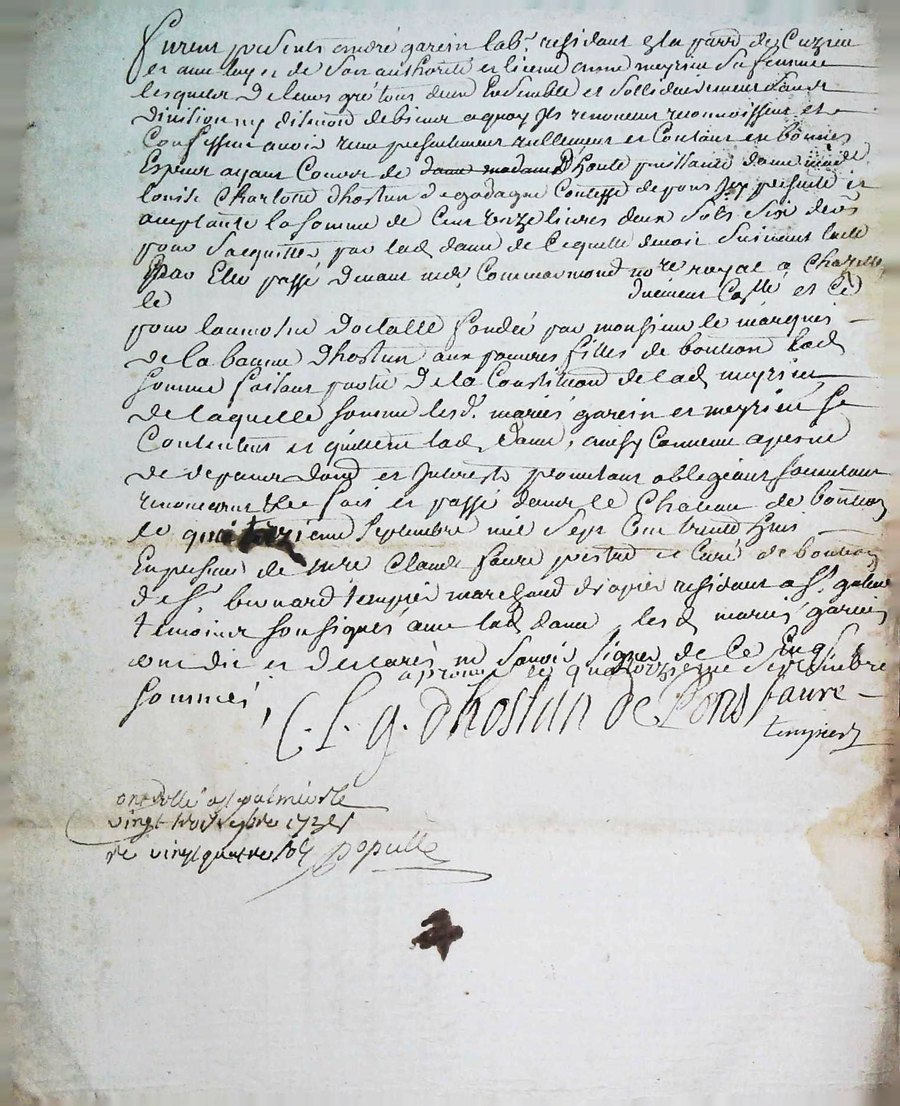 Furent présents andré garein lab.r residant en la parr. de Cuzieu
et avec luy et de son authorité et licence anne meyrieu sa femme
lesquels de leurs gré tous deux Ensemble et sollidairement sans
division ny dition de biens a quoy ils renoncent reconnoissent et
Confessent avoir reçu présentement réellement et Contant en bonnes
Especes ayant Cours de dame madame d haute puissante dame
louise Charlotte d'hostun de gadagne Contesse de pons icy présente et
acceptante la somme de Cent onze livres deux sols six
pour par lad dame de lequelle devoit suivant
par Elle passé devant me Commarmond no.re royal a
le dument Co.llé et Ce
pour fondée par monsieur le marquis
de la baume d'hostun aux pauvres filles de bouteon lad
somme faisant partie de la Constitution de lad meyrieu
de laquelle somme lesd. mariés garein et meyrieu se
Contentent et quittent lad dame, ainsy Convenu a peine
de depens dom et interests promettant obligeant soumettant
renoncant fait et passé dans le Chateau de bouteon
le quatorzieme septembre mil sept Cent trente huis
En présence de mre Claude faure prestre et Curé de bouteon
et s.r bernard tempier marchand drapier residant a st. galmie
temoins soussignés avec lad dame, les d mariés garein
ont dit et declarés ne savoir signer de Ce Enq
sommés, aprouvé le quatorzieme septembre
C. L. g. d'hostun de Pons faure
tempier
Controllé a st galmier le
vingt trois 7bre 1738
re vingt quatre sols populle